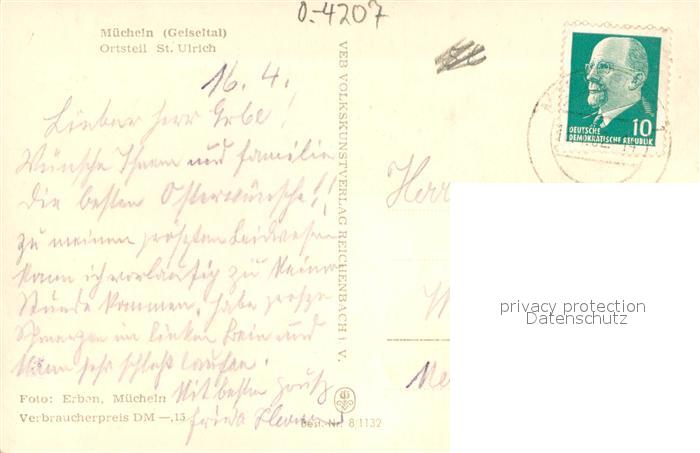 0-4207
Mücheln (Geiseltal)
Ortsteil St. Ulrich
16. 4.
Lieber Herr Erbe!
Wünsche Ihnen und Familie
die besten Osterwünsche!!
zu meinem größten Leidwesen
kann ich vorläufig zu Keiner
Stunde kommen, habe große
Schmerzen im linken Bein und
kann sehr schlecht laufen.
Mit besten Gruß
Frieda
Foto: Erben, Mücheln
Verbraucherpreis DM —,15
Best.-Nr. 8/1132
VEB VOLKSKUNSTVERLAG REICHENBACH i. V.
10
DEUTSCHE
DEMOKRATISCHE REPUBLIK
Herr
privacy protection
Datenschutz